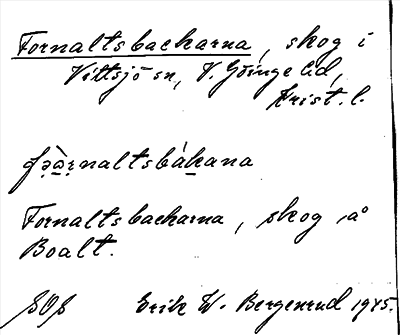 Fornaltsbackarna, skog i
Vittsjö sn, V. Göinge hd,
Krist. l.
fɔ̀ɑ̀rnaltsbákana
Fornaltsbackarna, skog å
Boalt.
SOS Erik W. Bergenrud 1945.